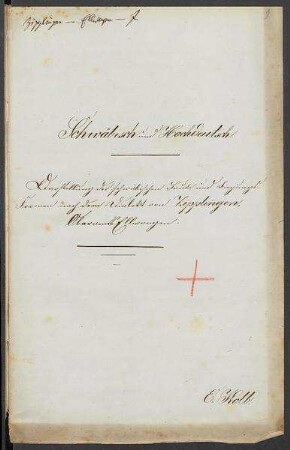 Zipplingen – Ellwangen – J
Schwäbisch und Hochdeutsch
Darstellung der schwäbischen Laute und Biegungs
formen nach dem Dialekt von Zipplingen,
Oberamts Ellwangen.
E. Kolb